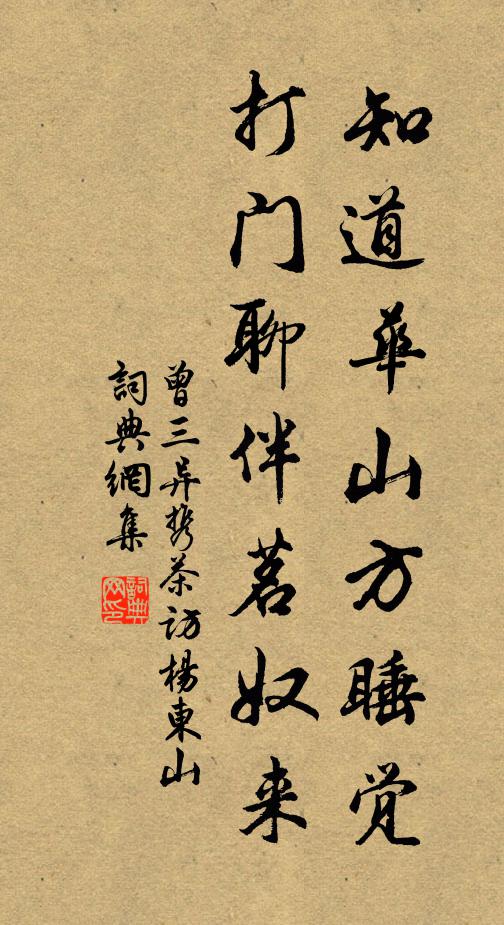 知道華山方睡觉
打门聊伴茗奴来
曾三异携茶访楊東山
詞典網集
詞典網印